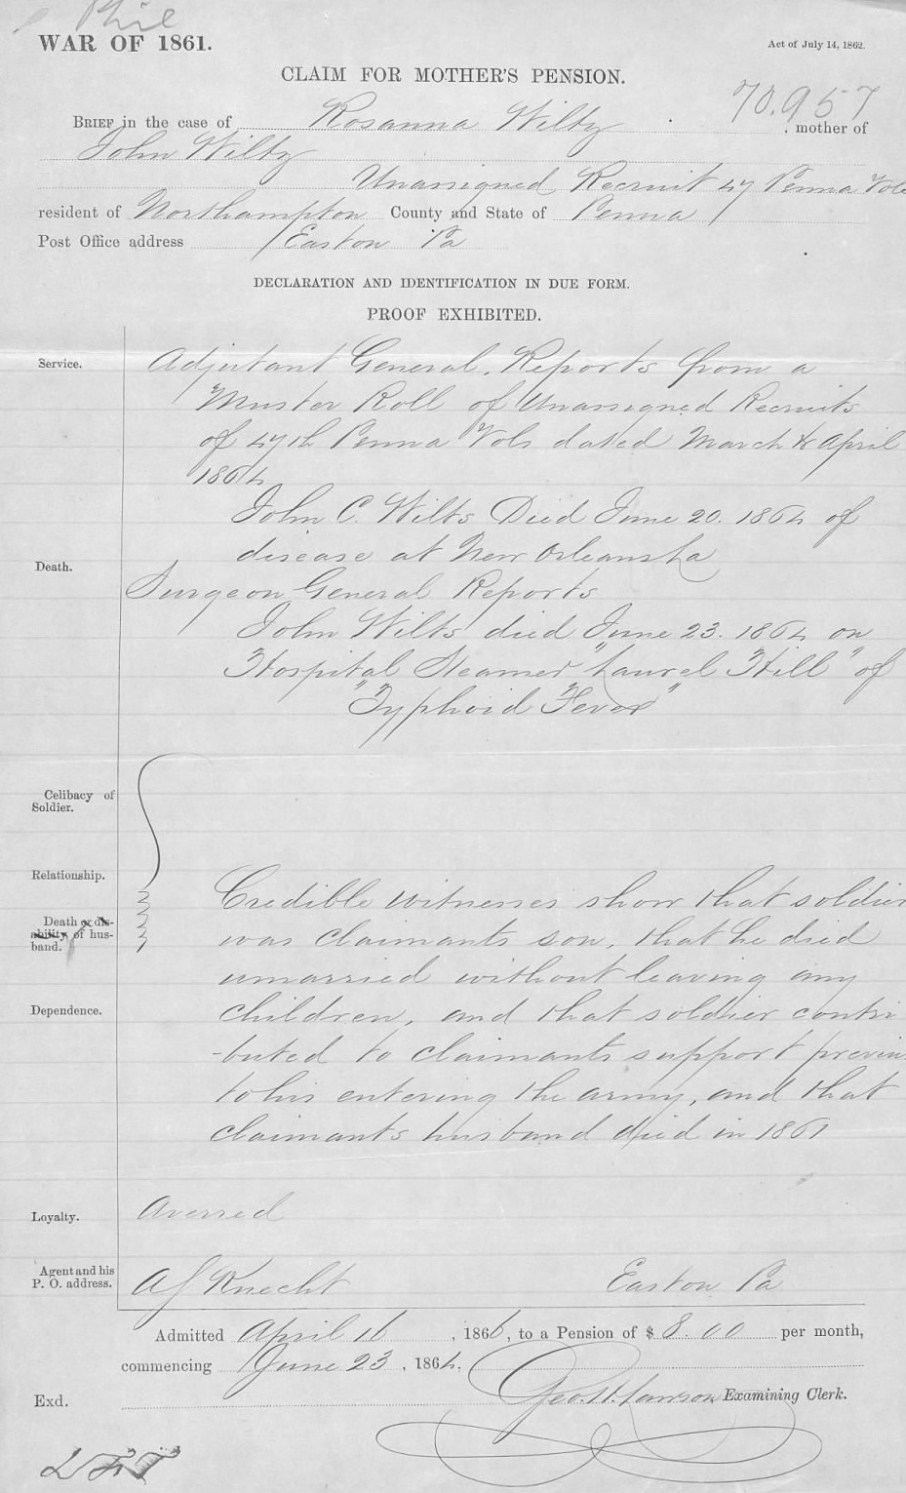 Phil
WAR OF 1861.
Act of July 14, 1862.
CLAIM FOR MOTHER'S PENSION.
70.957
BRIEF in the case of Rosanna Wilty, mother of
John Wilty
Unassigned Recruit 47 Penna Vols
resident of Northampton County and State of Penna
Post Office address Easton Pa
DECLARATION AND IDENTIFICATION IN DUE FORM.
PROOF EXHIBITED.
Service.
Adjutant General, Reports from a
Muster Roll of Unassigned Recruits
of 47th Penna Vols dated March & April
1864
John C. Wilts Died June 20. 1864 of
disease at New Orleans La
Death.
Surgeon General Reports
John Wilts died June 23. 1864 on
Hospital Steamer "Laurel Hill" of
"Typhoid Fever"
Celibacy of
Soldier.
Relationship.
Credible witnesses show that soldier
Death or dis-
ability of hus-
band.
was claimants son, that he died
unmarried without leaving any
Dependence.
children, and that soldier contri
-buted to claimants support previu
to his entering the army, and that
claimants husband died in 1861
Loyalty.
Averred
Agent and his
P. O. address.
A J Knecht Easton Pa
Admitted April 16, 1866, to a Pension of $ 8.00 per month,
commencing June 23, 1864.
Geo. H. Lawson Examining Clerk.
Exd.